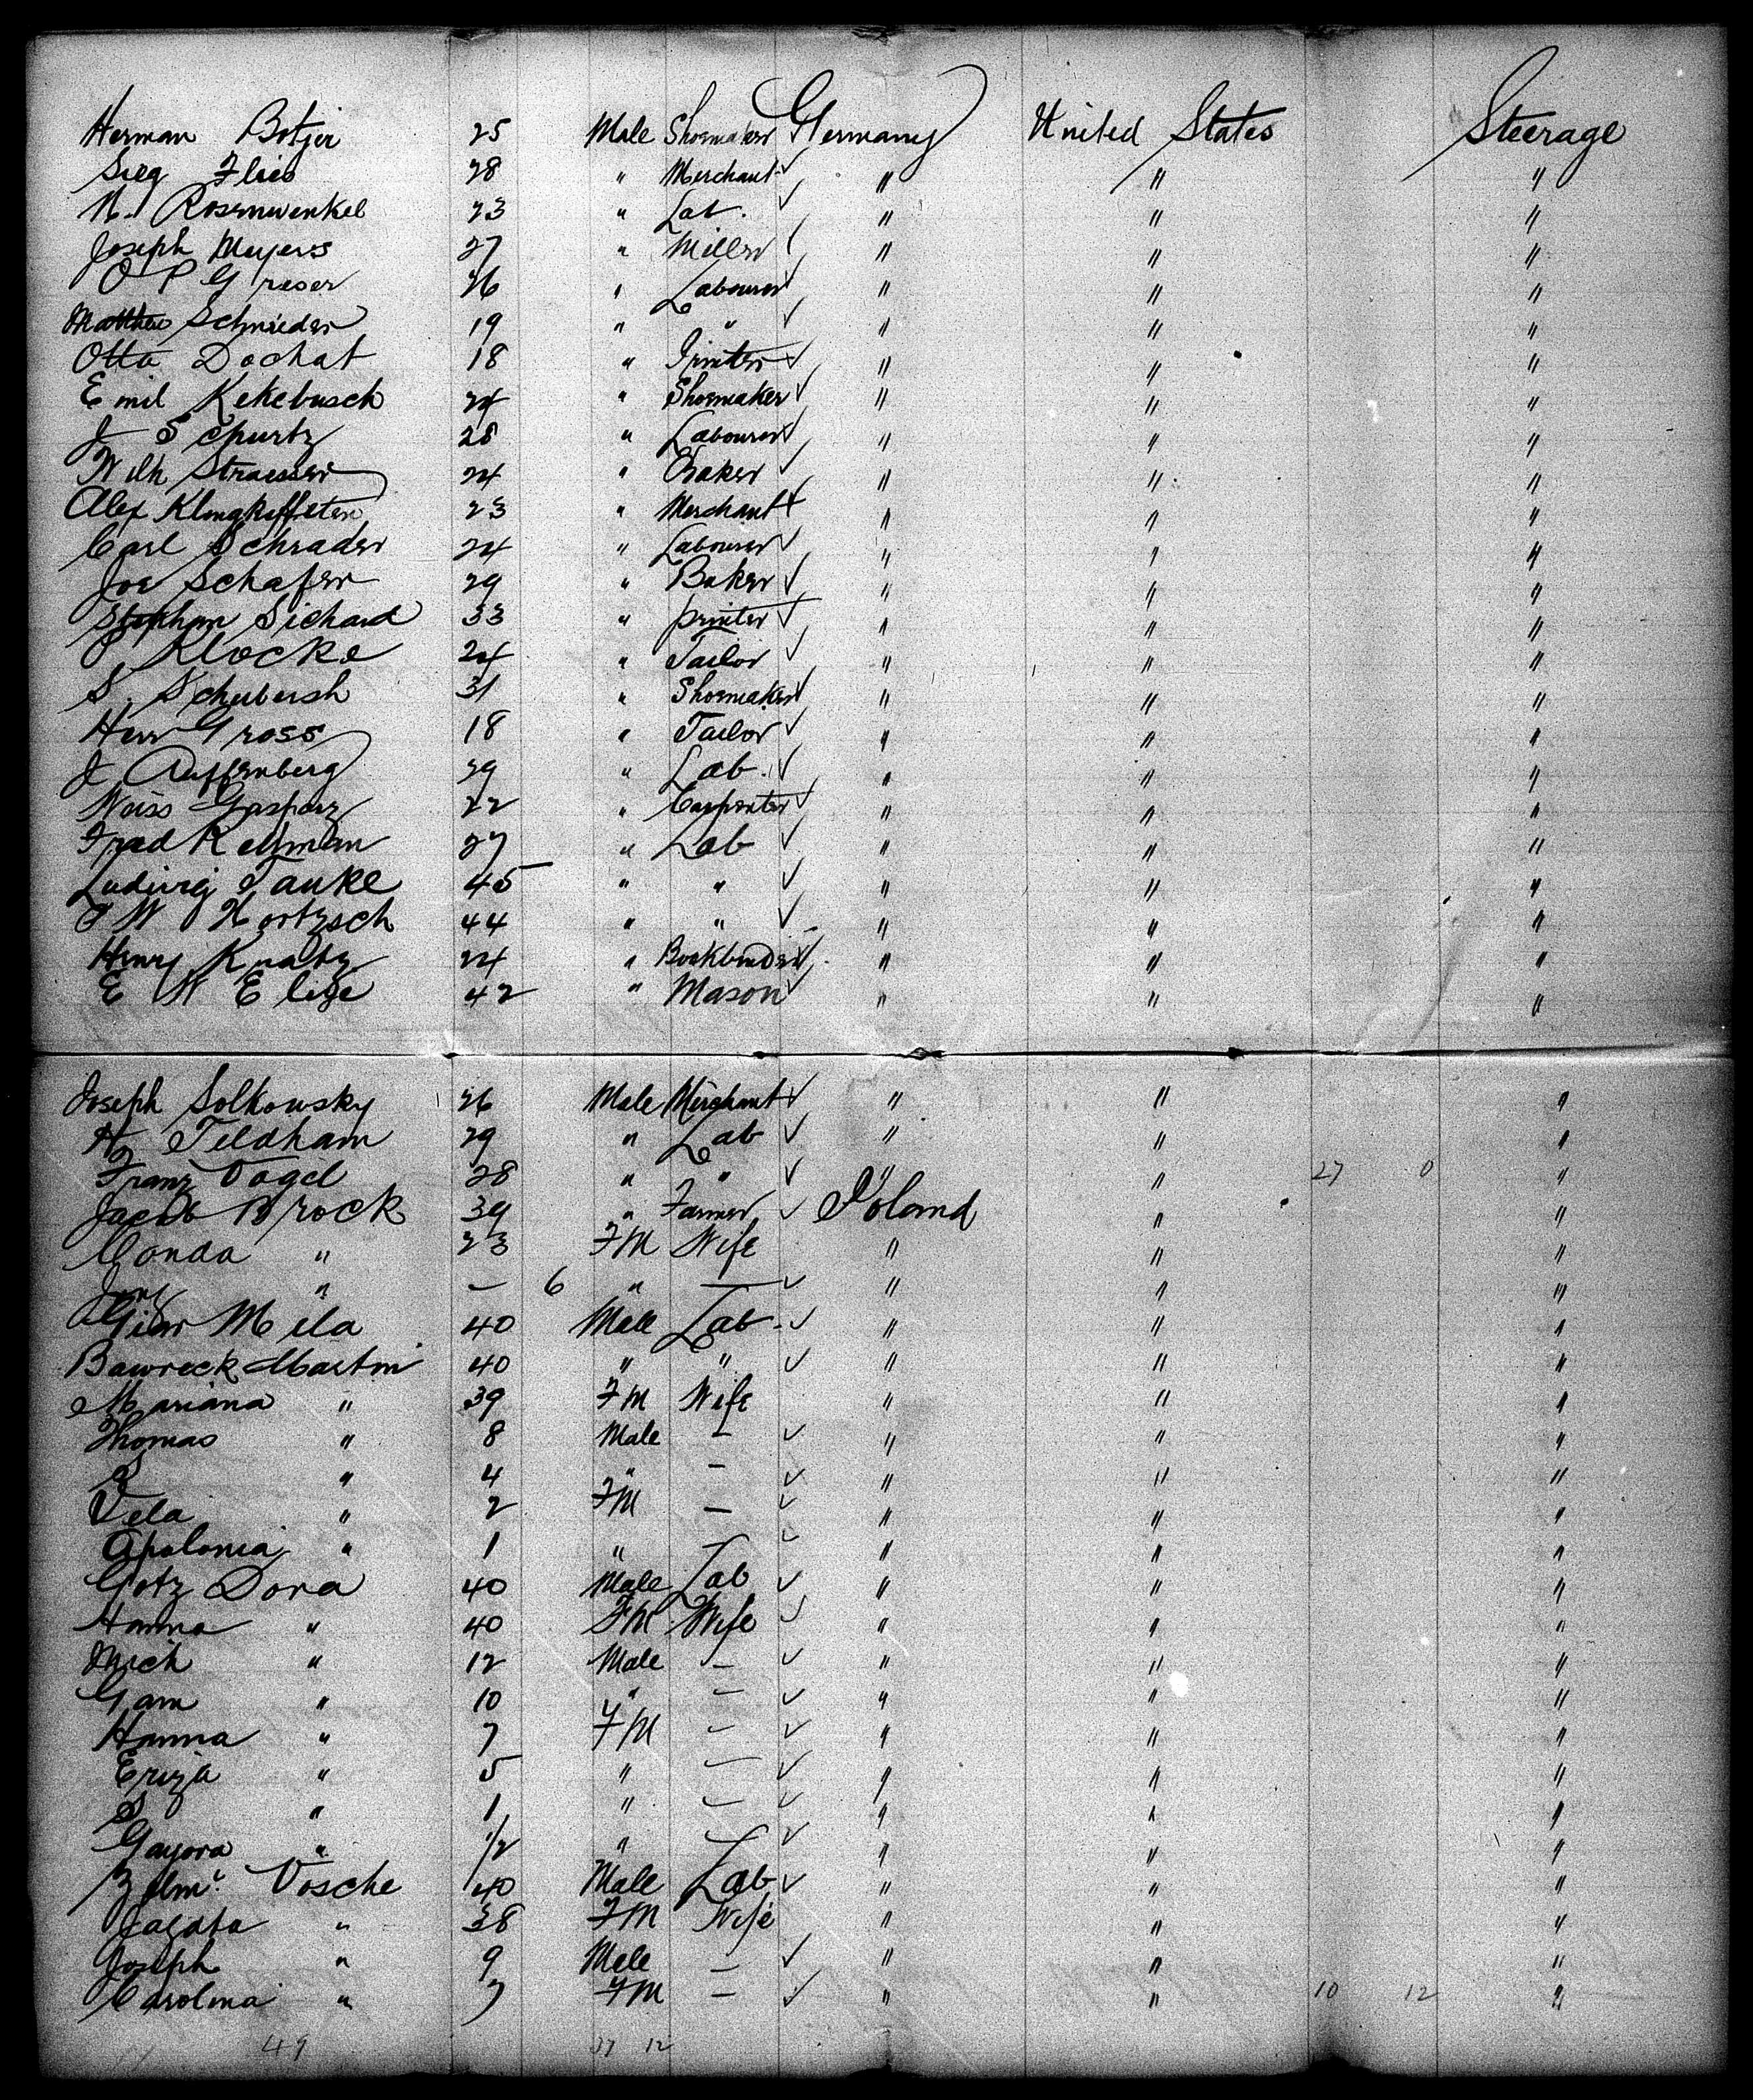 Herman Botjer 25 Male Shoemaker Germany United States Steerage
Sieg Flies 28 " Merchant " " "
N. Rosenwenkel 23 " Lab. " " "
Joseph Meyers 27 " Miller " " "
O P Greser 26 " Labourer " " "
Matthew Schnieder 19 " " " " "
Otto Dochat 18 " Printer " " "
Emil Kekebusch 24 " Shoemaker " " "
J Schurtz 28 " Labourer " " "
Wilh Straesser 24 " Baker " " "
Alex 23 " Merchant " " "
Carl Schrader 24 " Labourer " " "
Joe Schafer 29 " Baker " " "
Stephan Sichard 33 " printer " " "
Klocke 24 " Tailor " " "
S. Schubersh 31 " Shoemaker " " "
Herr Gross 18 " Tailor " " "
J Auffenberg 29 " Lab. " " "
Weiss Gasparz 22 " Carpenter " " "
Fred Rellman 27 " Lab " " "
Ludwig Tanke 45 " " " " "
F W Hortzsch 44 " " " " "
Henry Knaltz 24 " Bookbinder " " "
E W Elize 42 " Mason " " "
Joseph Solkowsky 26 Male Merchant " " "
H. Feldham 29 " Lab " " "
Franz Vogel 28 " " " " 27 0 "
Jacob Brock 39 " Farmer Poland " "
Conda " 23 FM Wife " " "
" — 6 " — " " "
Mela 40 Male Lab. " " "
Bawreck Martin 40 " " " " "
Mariana " 39 FM Wife " " "
Thomas " 8 Male — " " "
S " 4 " — " " "
Vela " 2 FM — " " "
Apolonia " 1 " — " " "
Gotz Dora 40 Male Lab " " "
Hanna " 40 FM Wife " " "
Mich " 12 Male — " " "
Gam " 10 " — " " "
Hanna " 7 FM — " " "
Eriza " 5 " — " " "
S " 1 " — " " "
Gayora " 1/2 " " " "
Vosche 40 Male Lab " " "
Jagata " 38 FM Wife " " "
Joseph " 9 Male — " " "
Carolina " 7 FM — " " 10 12 "
49 37 12